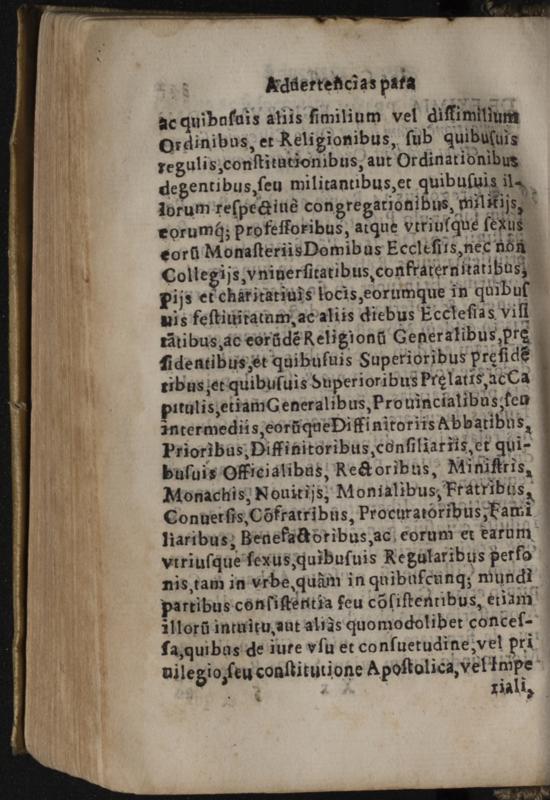 Aduertencias para
ac quibusuis aliis similium vel dissimilium
Ordinibus, et Religionibus, sub quibusuis
regulis,constitutionibus, aut Ordinationibus
degentibus,seu militantibus,et quibusuis il-
lorum respectiuè congregationibus, militijs,
eorumq́; professoribus, atque vtriusque sexus
eorū Monasteriis Domibus Ecclesiis,nec non
Collegijs,vniuersitatibus,confraternitatibus,
pijs et charitatiuis locis,eorumque in quibus
uis festiuitatum,ac aliis diebus Ecclesias visi
tātibus,ac eorūdē Religionū Generalibus,prę
sidentibus,et quibusuis Superioribus pręsidē
tibus,et quibusuis Superioribus Pręlatis,ac Ca
pitulis,etiam Generalibus,Prouincialibus,seu
intermediis,eorūque Diffinitoriis Abbatibus,
Prioribus,Diffinitoribus,consiliariis,et qui-
busuis Officialibus, Rectoribus, Ministris,
Monachis, Nouitijs, Monialibus, Fratribus,
Conuersis,Cōfratribus, Procuratoribus,Fami
liaribus, Benefactoribus,ac eorum et earum
vtriusque sexus,quibusuis Regularibus perso
nis,tam in vrbe,quàm in quibuscunq; mundi
partibus consistentia seu cōsistentibus, etiam
illorū intuitu,aut aliàs quomodolibet conces-
sa,quibus de iure vsu et consuetudine,vel pri
uilegio,seu constitutione Apostolica,vel Impe
riali,